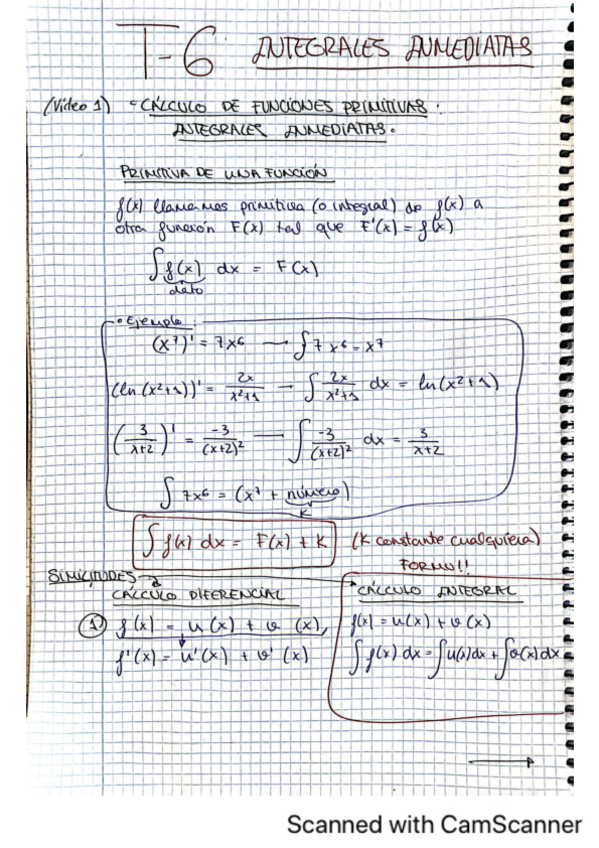 T-6 INTEGRALES INMEDIATAS
(Video 1) - CÁLCULO DE FUNCIONES PRIMITIVAS:
INTEGRALES INMEDIATAS.
PRIMITIVA DE UNA FUNCIÓN
f(x) llamamos primitiva (o integral) de f(x) a
otra función F(x) tal que F'(x) = f(x)
∫ f(x) dx = F(x)
dato
• Ejemplo:
(x⁷)' = 7x⁶ — ∫ 7x⁶ = x⁷
(ln(x²+1))' = 2x/(x²+1) — ∫ 2x/(x²+1) dx = ln(x²+1)
(3/(x+2))' = -3/(x+2)² — ∫ -3/(x+2)² dx = 3/(x+2)
∫ 7x⁶ = (x⁷ + número)
K
∫ f(x) dx = F(x) + K (K constante cualquiera)
FORMU!!
SIMILITUDES
CÁLCULO DIFERENCIAL
① f(x) = u(x) + v(x),
f'(x) = u'(x) + v'(x)
CÁLCULO INTEGRAL
f(x) = u(x) + v(x)
∫ f(x) dx = ∫ u(x) dx + ∫ v(x) dx
Scanned with CamScanner